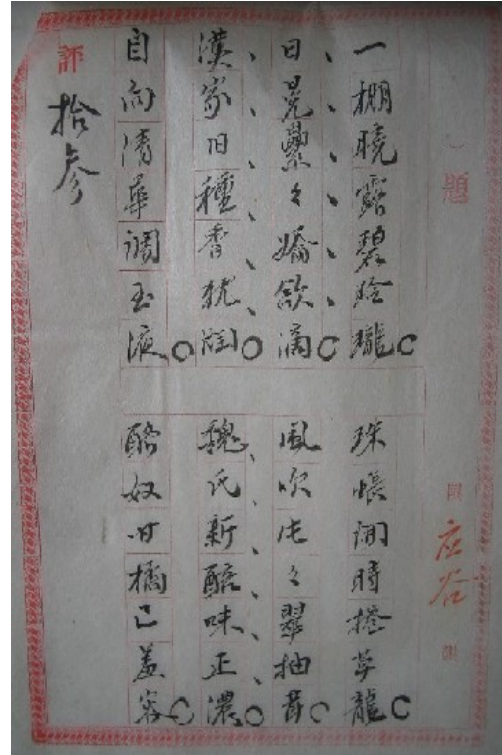 題
応谷
一棚曉露碧玲瓏
珠帳開時捲草龍
日晃纍々嬌欲滴
風吹々翠抽茸
漢家旧種香犹
魏氏新醅味正濃
自向清華調玉液
酪奴甘橘已羞容
評
拾参